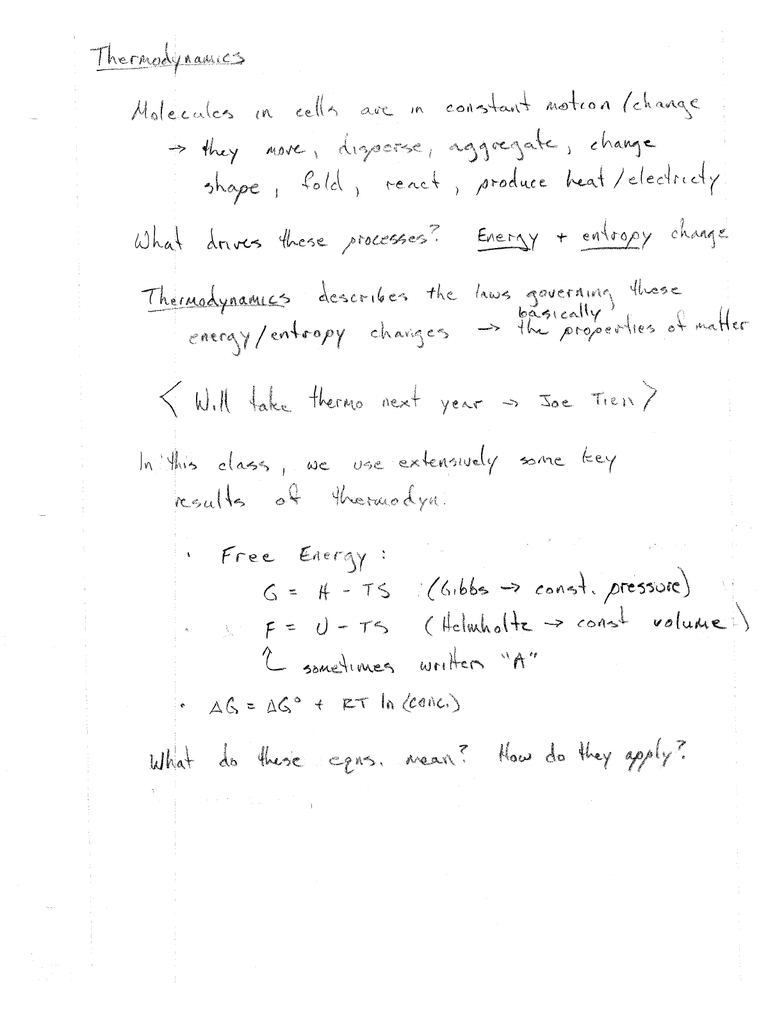 Thermodynamics
Molecules in cells are in constant motion/change
→ they move, disperse, aggregate, change
shape, fold, react, produce heat/electricty
What drives these processes? Energy + entropy change
Thermodynamics describes the laws governing these
basically
energy/entropy changes → the properties of matter
< Will take thermo next year → Joe Tien >
In this class, we use extensively some key
results of thermodyn.
• Free Energy:
G = H - TS (Gibbs → const. pressure)
F = U - TS (Helmholtz → const volume)
↑ sometimes written "A"
• ΔG = ΔG° + RT ln (conc.)
What do these eqns. mean? How do they apply?